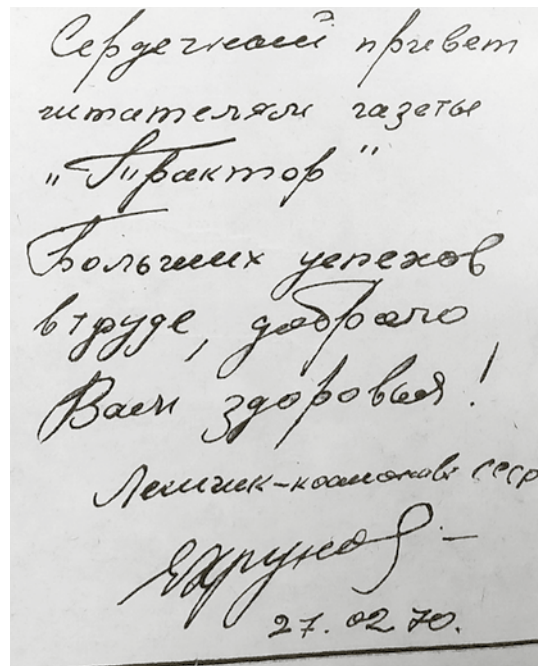 Сердечный привет
читателям газеты
„Трактор"
Больших успехов
в труде, доброго
Вам здоровья!
Летчик-космонавт СССР
ЕХрунов
27.02.70.